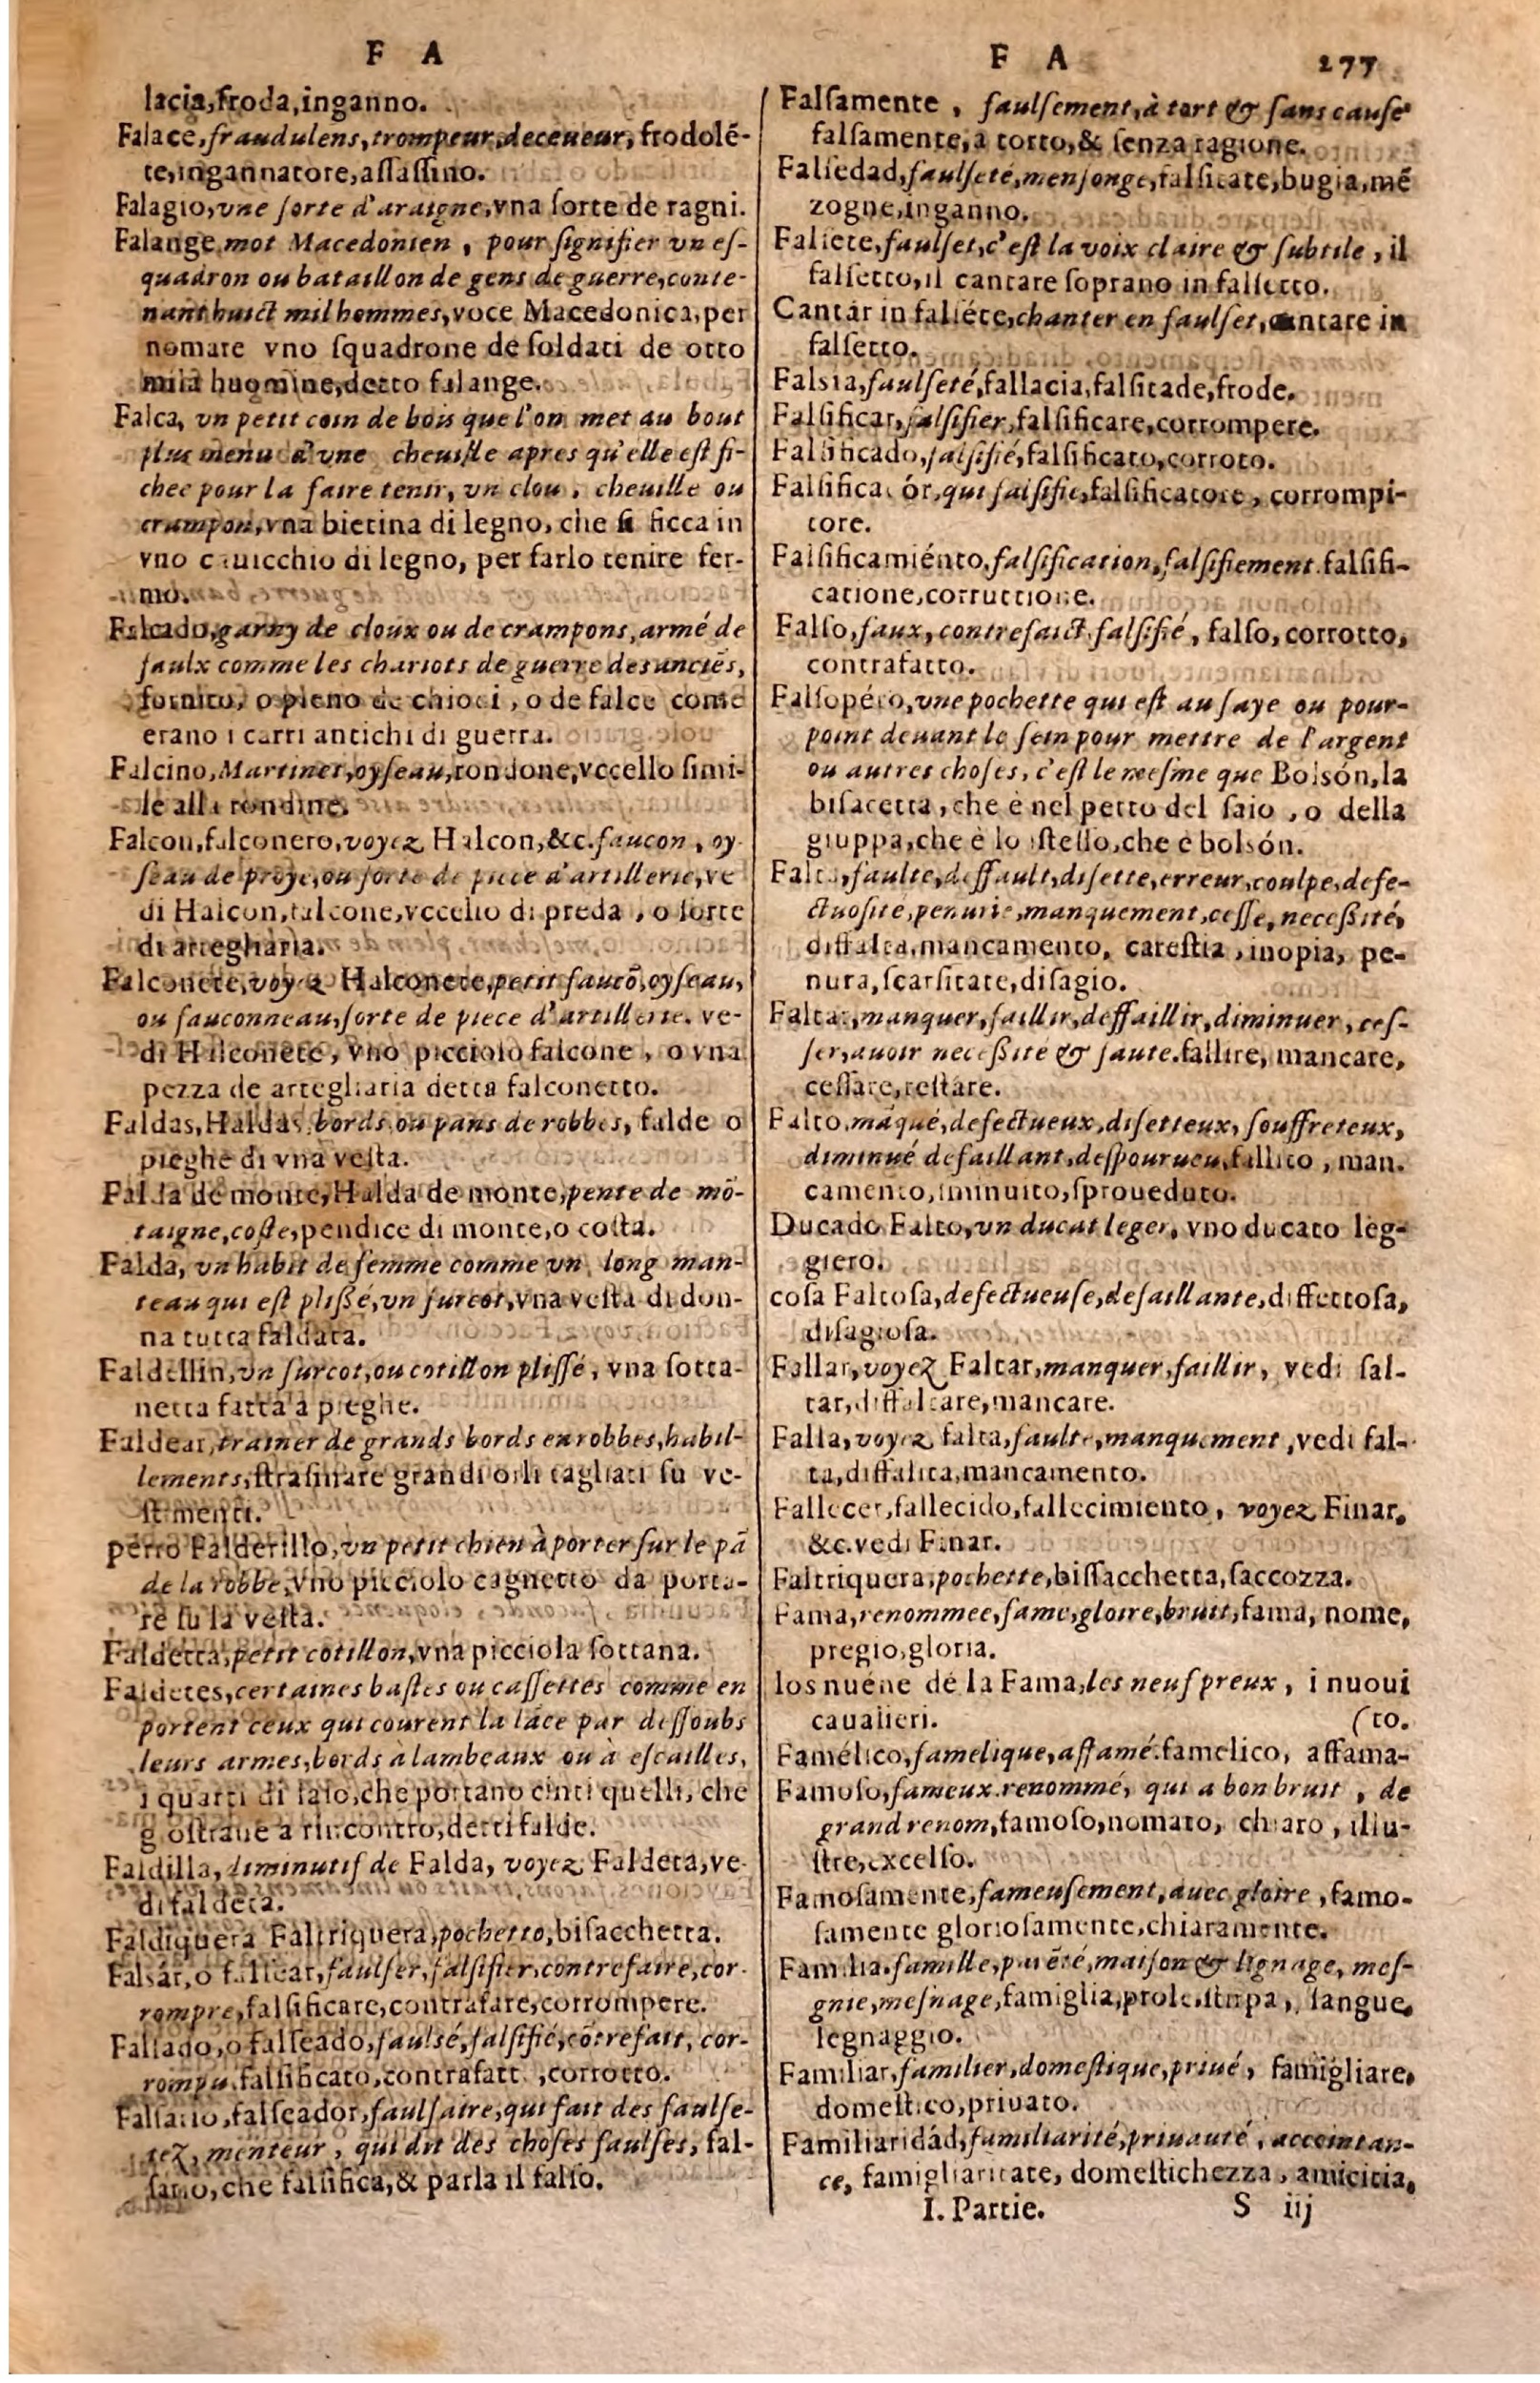 F A
lacia,froda,inganno.
Falace,fraudulens,trompeur,deceueur, frodolé-
te,ingannatore,aſſaſſino.
Falagio,vne ſorte d'araigne,vna ſorte de ragni.
Falange mot Macedonien, pour ſignifier vn eſ-
quadron ou bataillon de gens de guerre,conte-
nant huict mil hommes,voce Macedonica,per
nomare vno ſquadrone de ſoldati de otto
mila huomine,detto falange.
Falca, vn petit coin de bois que l'on met au bout
plus menu d'vne cheuille apres qu'elle eſt fi-
chee pour la faire tenir, vn clou, cheuille ou
crampon,vna bietina di legno, che ſi ficca in
vno cauicchio di legno, per farlo tenire fer-
mo.
Falcado,garny de cloux ou de crampons,armé de
faulx comme les chariots de guerre des anciēs,
fornito, o pieno de chiodi, o de falce come
erano i carri antichi di guerra.
Falcino,Martinet,oyſeau,rondone,vccello ſimi-
le alla rondine.
Falcon,falconero,voyez Halcon,&c.faucon, oy-
ſeau de proye,ou ſorte de piece d'artillerie,ve
di Halcon,falcone,vccello di preda, o ſorte
di artegharia.
Falconete,voyez Halconete,petit faucō,oyſeau,
ou fauconneau,ſorte de piece d'artillerie. ve-
di Halconete, vno picciolo falcone, o vna
pezza de artegliaria detta falconetto.
Faldas,Haldas,bords ou pans de robbes, falde o
pieghe di vna veſta.
Falda de monte,Halda de monte,pente de mō-
taigne,coſte,pendice di monte,o coſta.
Falda, vn habit de femme comme vn long man-
teau qui eſt plißé,vn ſurcot,vna veſta di don-
na tutta faldata.
Faldellin,vn ſurcot,ou cotillon pliſſé, vna ſotta-
netta fatta a pieghe.
Faldear,trainer de grands bords en robbes,habil-
lements,ſtraſinare grandi orli tagliati ſu ve-
ſtimenti.
perro Falderillo,vn petit chien à porter ſur le pā
de la robbe,vno picciolo cagnetto da porta-
re ſu la veſta.
Faldetta,petit cotillon,vna picciola ſottana.
Faldetes,certaines baſtes ou caſſettes comme en
portent ceux qui courent la lāce par deſſoubs
leurs armes,bords à lambeaux ou à eſcailles,
i quarti di ſaio,che portano cinti quelli, che
gioſtrane a rincontro,detti falde.
Faldilla, diminutif de Falda, voyez Faldeta,ve-
di faldeta.
Faldiquera Faltriquera,pochette,biſacchetta.
Falsár,o falſear,faulſer,falſifier,contrefaire,cor-
rompre,falſificare,contrafare,corrompere.
Falſado,o falſeado,faulsé,falſifié,cōtrefait, cor-
rompu.falſificato,contrafatt,corrotto.
Falſario,falſeador,faulſaire,qui fait des faulſe-
tez, menteur, qui dit des choſes faulſes, fal-
ſario,che falſifica,& parla il falſo.
F A 277
Falſamente, faulſement,à tort & ſans cauſe
falſamente,a torto,& ſenza ragione.
Falſedad,faulſeté,menſonge,falſitate,bugia,mé
zogne,inganno.
Falſete,faulſet,c'eſt la voix claire & ſubtile, il
falſetto,il cantare ſoprano in falſetto.
Cantár in falſéte,chanter en faulſet,cantare in
falſetto.
Falsia,faulſeté,fallacia,falſitade,frode.
Falſificar,falſifier,falſificare,corrompere.
Falſificado,falſifié,falſificato,corroto.
Falſificadór,qui falſifie,falſificatore, corrompi-
tore.
Falſificamiénto.falſification,falſifiement.falſifi-
catione,corruttione.
Falſo,faux,contrefaict,falſifié, falſo,corrotto,
contrafatto.
Falſopéto,vne pochette qui eſt au ſaye ou pour-
point deuant le ſein pour mettre de l'argent
ou autres choſes, c'eſt le meſme que Bolsón,la
biſacetta,che è nel petto del ſaio, o della
giuppa,che è lo iſteſſo,che è bolsón.
Falta,faulte,deffault,diſette,erreur,coulpe,defe-
ctuoſité,penurie,manquement,ceſſe,neceßité,
diffalta,mancamento, careſtia,inopia, pe-
nura,ſcarſitate,diſagio.
Faltar,manquer,faillir,deffaillir,diminuer,ceſ-
ſer,auoir neceßité & faute.fallire, mancare,
ceſſare,reſtare.
Falto,māqué,defectueux,diſetteux,ſouffreteux,
diminué defaillant,deſpourueu,fallito, man.
camento,iminuito,ſproueduto.
Ducado Falto,vn ducat leger, vno ducato leg-
giero.
coſa Faltoſa,defectueuſe,defaillante,diffettoſa,
diſagioſa.
Fallar,voyez Faltar,manquer,faillir, vedi fal-
tar,diffaltare,mancare.
Falla,voyez falta,faulte,manquement,vedi fal-
ta,diffalita,mancamento.
Fallecer,fallecido,fallecimiento, voyez Finar,
&c.vedi Finar.
Faltriquera,pochette,biſſacchetta,ſaccozza.
Fama,renommee,fame,gloire,bruit,fama, nome,
pregio,gloria.
los nuéue de la Fama,les neuf preux, i nuoui
caualieri. (to.
Famélico,famelique,affamé.famelico, affama-
Famoſo,fameux.renommé, qui a bon bruit, de
grand renom,famoſo,nomato, chiaro, illu-
ſtre,excelſo.
Famoſamente,fameuſement,auec gloire,famo-
ſamente glorioſamente,chiaramente.
Familia.famille,parēté,maiſon & lignage, meſ-
gnie,meſnage,famiglia,prole,ſtirpa, ſangue,
legnaggio.
Familiar,familier,domeſtique,priué, famigliare,
domeſtico,priuato.
Familiaridád,familiarité,priuauté, accointan-
ce, famigliaritate, domeſtichezza, amicitia,
I. Partie. S iij